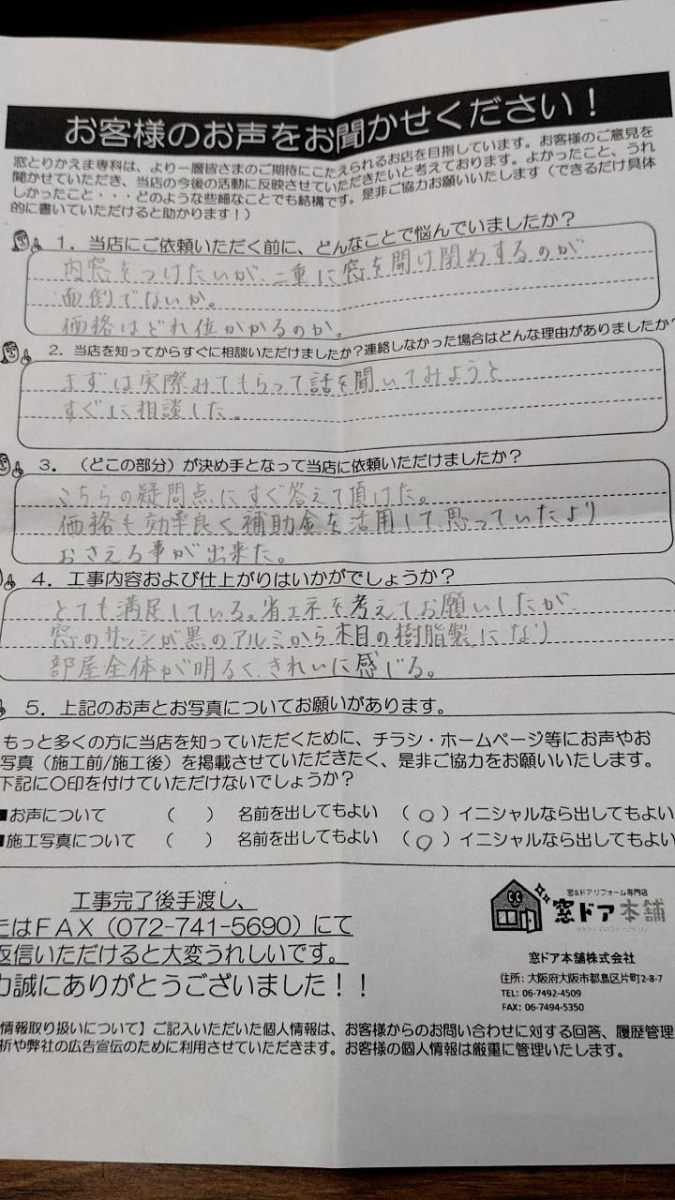 お客様のお声をお聞かせください！
窓とりかえま専科は、より一層皆さまのご期待にこたえられるお店を目指しています。お客様のご意見を
聞かせていただき、当店の今後の活動に反映させていただきたいと考えております。よかったこと、うれ
しかったこと・・・どのような些細なことでも結構です。是非ご協力お願いいたします（できるだけ具体
的に書いていただけると助かります！）
1．当店にご依頼いただく前に、どんなことで悩んでいましたか？
内窓をつけたいが、二重に窓を開け閉めするのが
面倒でないか。
価格はどれ位かかるのか。
2．当店を知ってからすぐに相談いただけましたか？連絡しなかった場合はどんな理由がありましたか？
まずは実際みてもらって話を聞いてみようと
すぐに相談した。
3．（どこの部分）が決め手となって当店に依頼いただけましたか？
こちらの疑問点にすぐ答えて頂けた。
価格も効率良く補助金を活用して、思っていたより
おさえる事が出来た。
4．工事内容および仕上がりはいかがでしょうか？
とても満足している。省エネを考えてお願いしたが、
窓のサッシが黒のアルミから木目の樹脂製になり
部屋全体が明るく、きれいに感じる。
5．上記のお声とお写真についてお願いがあります。
もっと多くの方に当店を知っていただくために、チラシ・ホームページ等にお声やお
写真（施工前/施工後）を掲載させていただきたく、是非ご協力をお願いいたします。
下記に〇印を付けていただけないでしょうか？
■お声について （ ） 名前を出してもよい （○）イニシャルなら出してもよい
■施工写真について （ ） 名前を出してもよい （○）イニシャルなら出してもよい
工事完了後手渡し、
たはＦＡＸ（072-741-5690）にて
返信いただけると大変うれしいです。
力誠にありがとうございました！！
窓&ドアリフォーム専門店
窓ドア本舗
窓ドア本舗株式会社
住所: 大阪府大阪市都島区片町2-8-7
TEL: 06-7492-4509
FAX: 06-7494-5350
情報取り扱いについて】ご記入いただいた個人情報は、お客様からのお問い合わせに対する回答、履歴管理
析や弊社の広告宣伝のために利用させていただきます。お客様の個人情報は厳重に管理いたします。